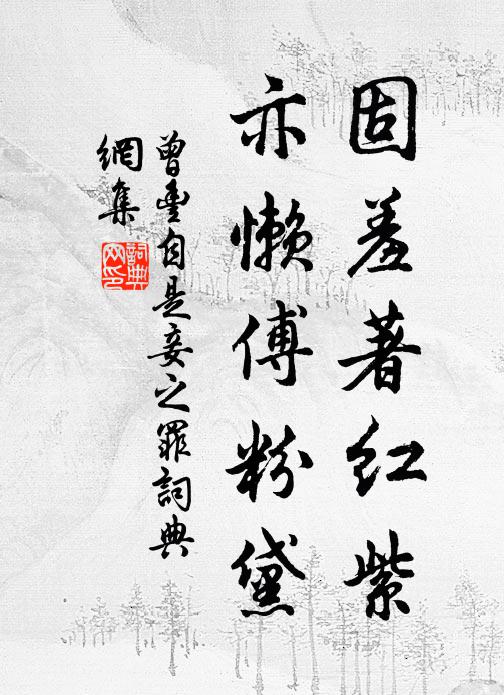 固羞著红紫
亦懒傅粉黛
曾豐自是妾之罪詞典
網集
詞典
网印